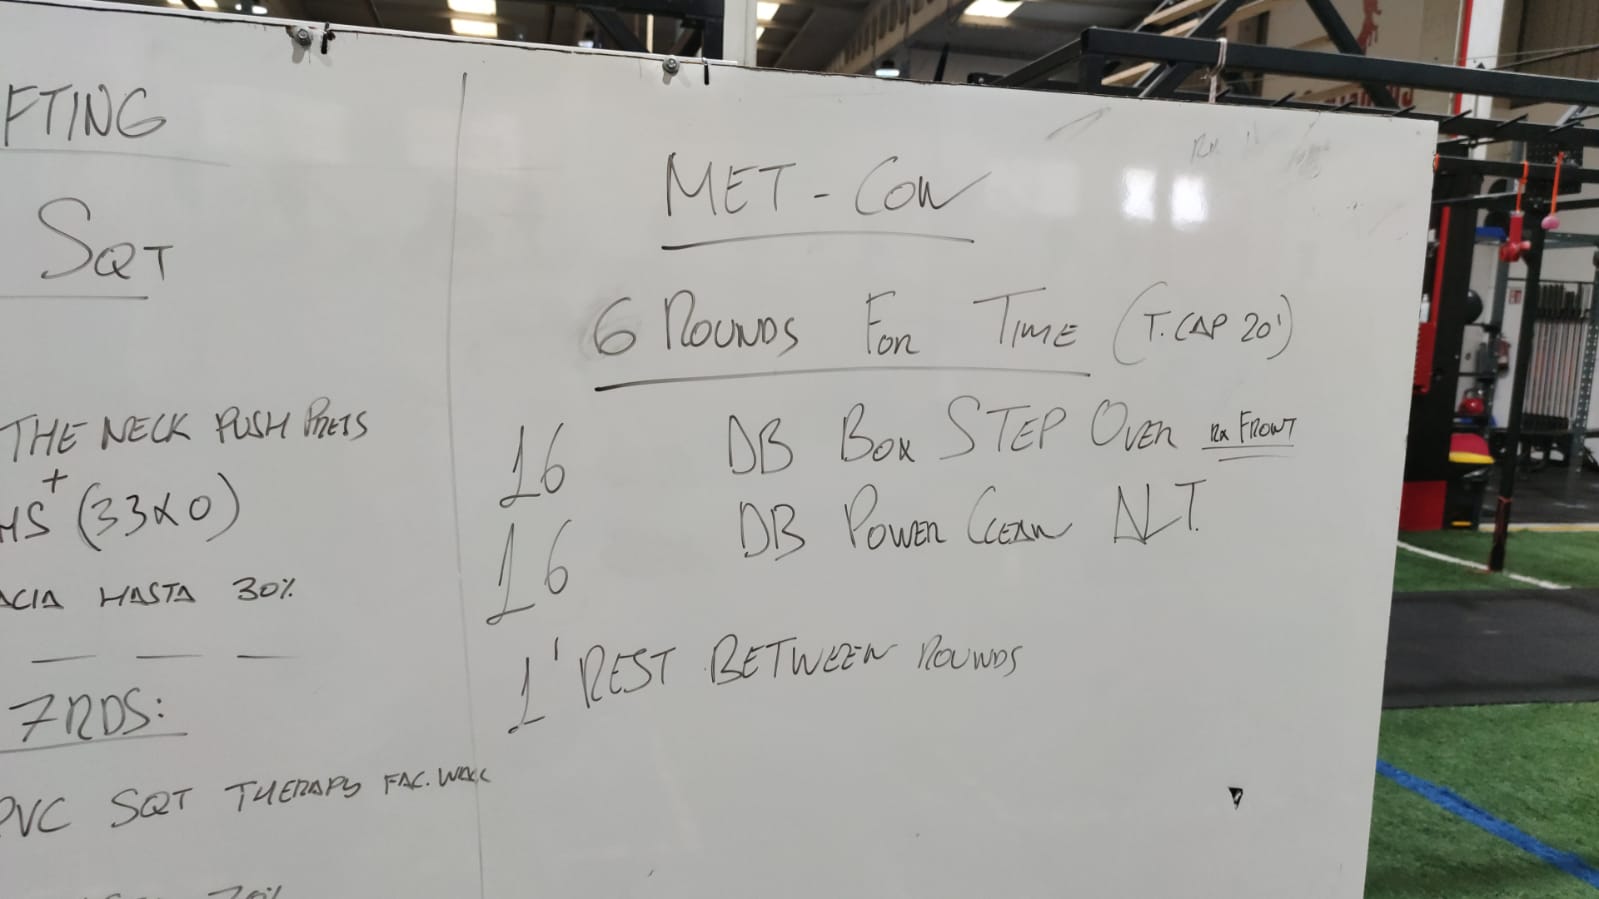 FTING
SQT
THE NECK PUSH PRETS
+
MS (33X0)
ACIA HASTA 30%
— — —
7RDS:
PVC SQT THERAPY FAC. WALL
MET-CON
6 ROUNDS FOR TIME (T.CAP 20')
16 DB BOX STEP OVER RX FRONT
16 DB POWER CLEAN ALT.
1' REST BETWEEN ROUNDS